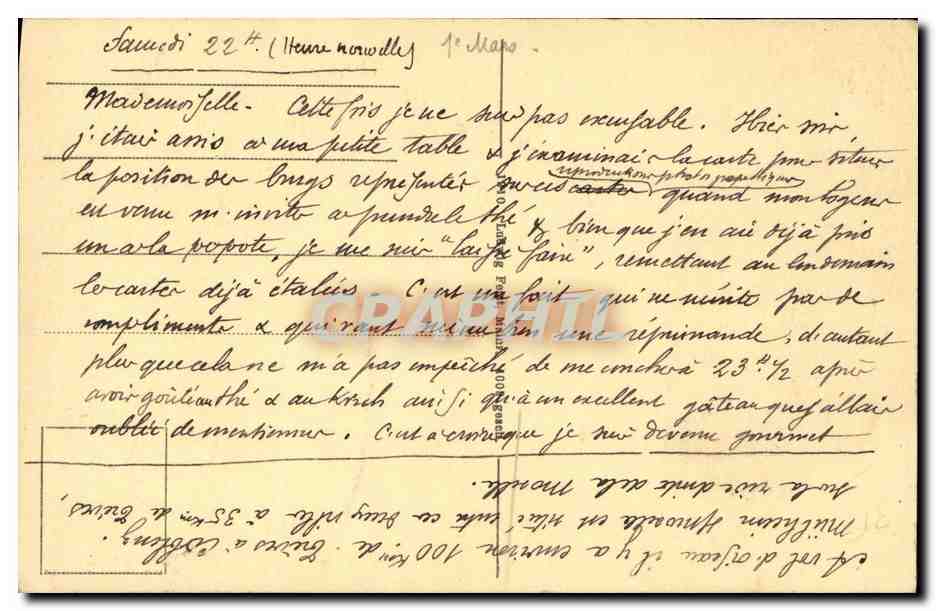 Samedi 22 H. (Heure nouvelle) 1e Mars.
Mademoiselle - Cette fois je ne suis pas excusable. Hier soir,
j'étais assis à ma petite table & j'examinais la carte pour situer
reproductions photographiques
la position des burgs représentés sur ces cartes quand mon logeur
est venu m'inviter à prendre le thé & bien que j'en aie déjà pris
un à la popote, je me suis "laissé faire", remettant au lendemain
les cartes déjà étalées. C'est un fait qui ne mérite pas de
compliments & qui vaut même bien une réprimande, d'autant
plus que cela ne m'a pas empêché de me coucher à 23 H 1/2 après
avoir goûté au thé & au Kirsch ainsi qu'à un excellent gâteau que j'allais
oublier de mentionner. C'est à croire que je suis devenu gourmet
A vol d'oiseau il y a environ 100 Km de Trèves à Coblenz.
Mülheim est situé entre ces deux villes à 35 Km de Trèves,
sur la rive droite de la Moselle.
Ludwig Feist, Mainz
CPAPHIL